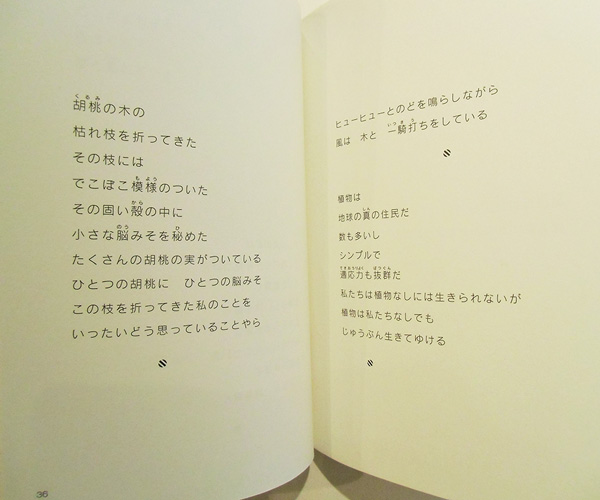 胡桃の木の
枯れ枝を折ってきた
その枝には
でこぼこ模様のついた
その固い殻の中に
小さな脳みそを秘めた
たくさんの胡桃の実がついている
ひとつの胡桃に　ひとつの脳みそ
この枝を折ってきた私のことを
いったいどう思っていることやら
36
ヒューヒューとのどを鳴らしながら
風は　木と　一騎打ちをしている
植物は
地球の真の住民だ
数も多いし
シンプルで
適応力も抜群だ
私たちは植物なしには生きられないが
植物は私たちなしでも
じゅうぶん生きてゆける